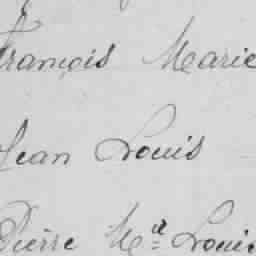 François Marie
Jean Louis
Pierre Mie Louis